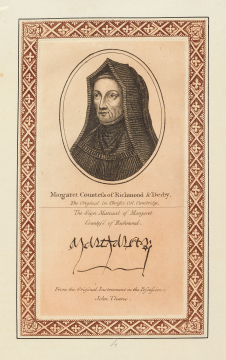 Margaret Countess of Richmond & Derby.
The Original in Christs Col. Cambridge.
The Sign Manual of Margaret
Countess of Richmond.
From the Original Instrument in the Possession of
John Thane.